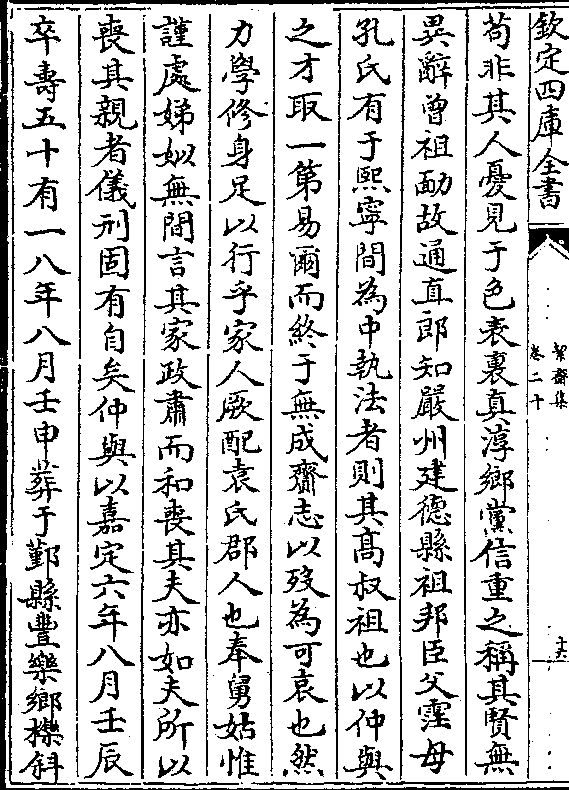 欽定四庫全書
絜齋集
卷二十
十六
苟非其人憂見于色表裏真淳鄉黨信重之稱其賢無
異辭曾祖勔故通直郎知嚴州建德縣祖邦臣父霔母
孔氏有于熙寧間為中執法者則其髙叔祖也以仲與
之才取一第易爾而終于無成齎志以歿為可哀也然
力學修身足以行乎家人厥配袁氏郡人也奉舅姑惟
謹處娣姒無間言其家政肅而和喪其夫亦如夫所以
喪其親者儀刑固有自矣仲與以嘉定六年八月壬辰
卒壽五十有一八年八月壬申葬于鄞縣豐樂鄉櫟斜